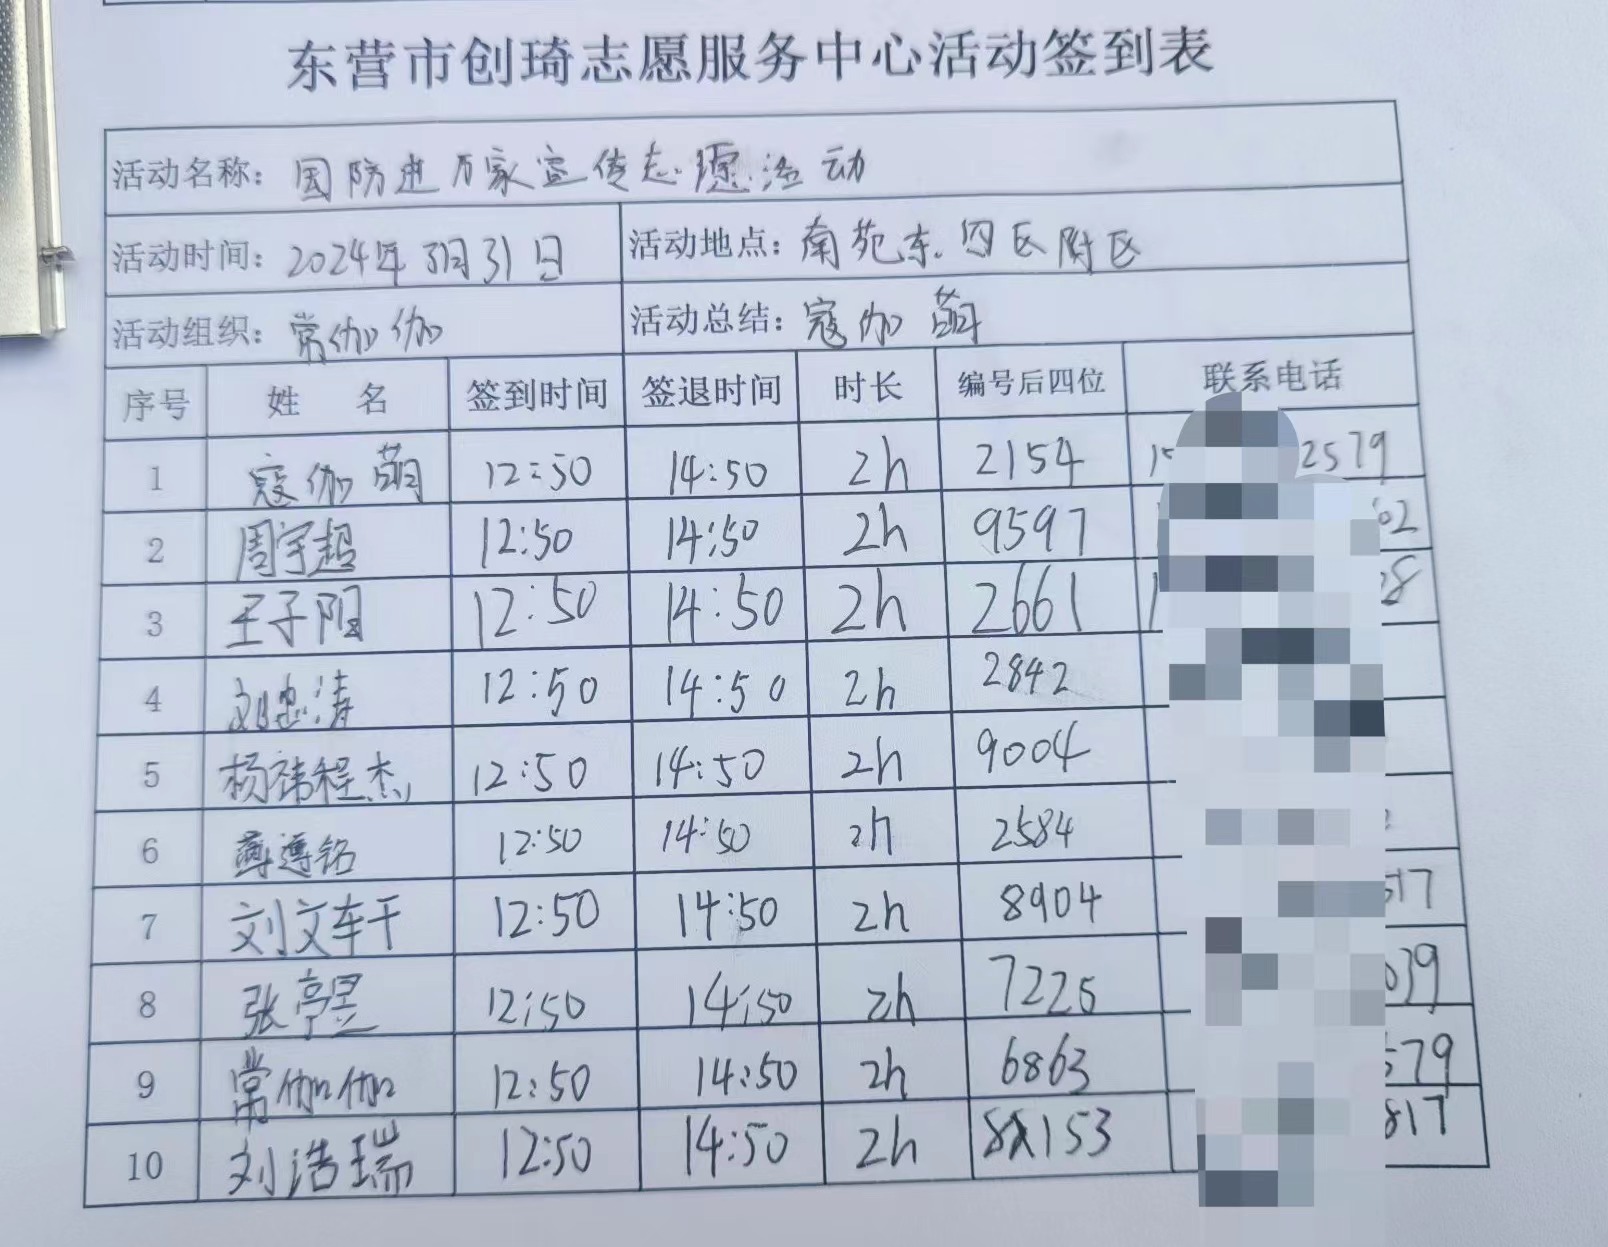 东营市创琦志愿服务中心活动签到表
活动名称: 国防进万家宣传志愿活动
活动时间: 2024年3月31日 活动地点: 南苑东四区附区
活动组织: 常伽伽 活动总结: 寇伽萌
序号 姓 名 签到时间 签退时间 时长 编号后四位 联系电话
1 寇伽萌 12:50 14:50 2h 2154 15 2579
2 周宇超 12:50 14:50 2h 9597 02
3 王子阳 12:50 14:50 2h 2661 1 8
4 刘忠涛 12:50 14:50 2h 2842
5 杨祎程杰 12:50 14:50 2h 9004
6 薄遵铭 12:50 14:50 2h 2584
7 刘文车干 12:50 14:50 2h 8904 517
8 张亭昱 12:50 14:50 2h 7225 039
9 常伽伽 12:50 14:50 2h 6863 579
10 刘浩瑞 12:50 14:50 2h 8153 817